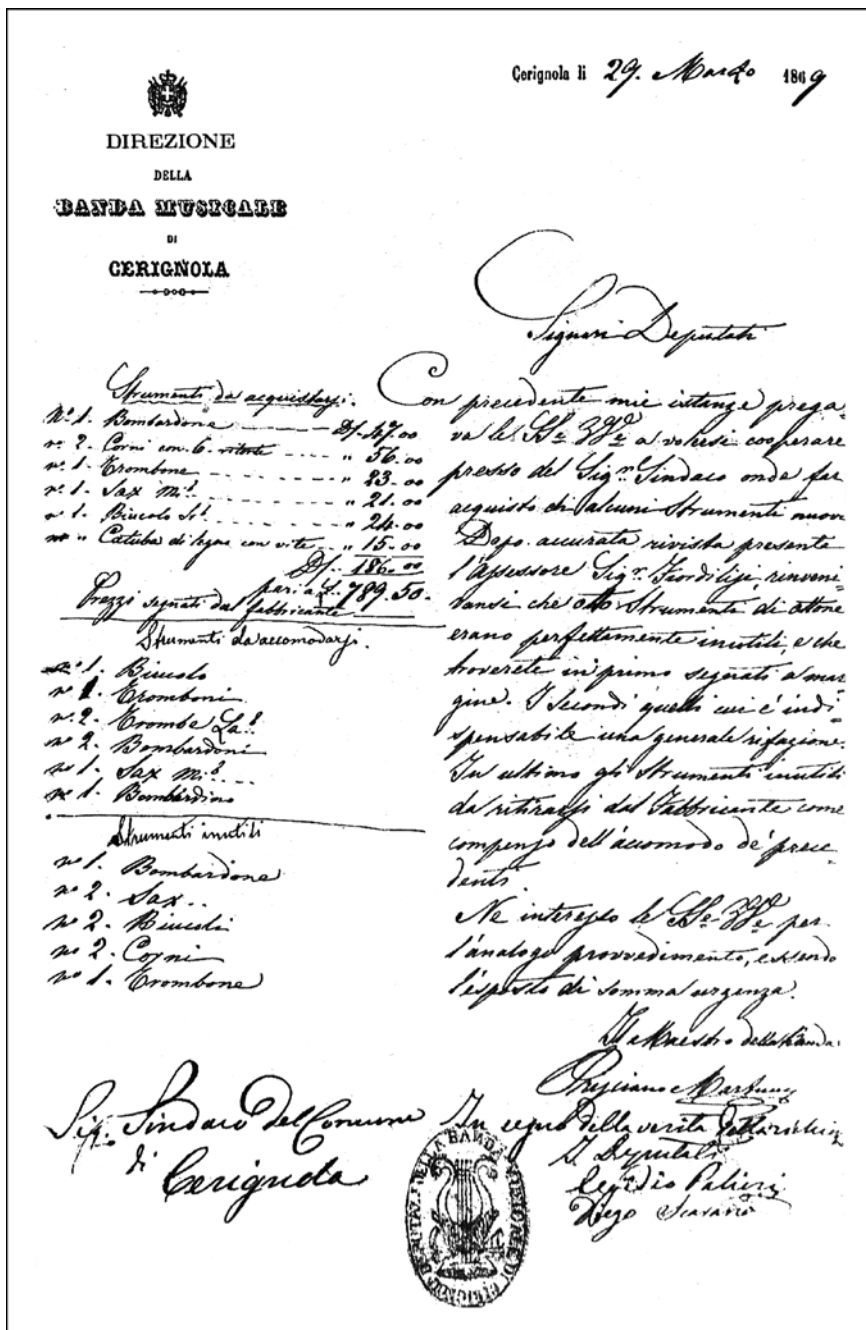 Cerignola li 29. Marzo 1869
DIREZIONE
DELLA
BANDA MUSICALE
DI
CERIGNOLA
Signori Deputati
Strumenti da acquistarsi.
N.º 1. Bombardone D/. 47.00
nº 2. Corni con 6. ritorte " 56.00
nº 1. Trombone " 23.00
nº 1. Sax Mi.b " 21.00
nº 1. Biucolo Si.b " 24.00
nº " Catuba di legno con vite " 15.00
D/. 186.00
pari a £. 789.50.
Prezzi segnati dal fabbricante
Strumenti da accomodarsi.
nº 1. Biucolo
nº 1. Tromboni
nº 2. Trombe La.b
nº 2. Bombardoni
nº 1. Sax Mi.b
nº 1. Bombardino
Strumenti inutili
nº 1. Bombardone
nº 2. Sax
nº 2. Biucoli
nº 2. Corni
nº 1. Trombone
Con precedente mie istanze prega-
va le SSe. a volersi cooperare
presso del Sigr. Sindaco onde far
acquisto di alcuni Strumenti nuovi
Dopo accurata rivista presente
l'Assessore Sigr. Fiordilisi, rinveni-
vansi che otto Strumenti di ottone
erano perfettamente inutili, e che
troverete in primo segnati a mar-
gine. I secondi quelli cui è indi-
spensabile una generale rifazione.
In ultimo gli Strumenti inutili
da ritirarsi dal Fabbricante come
compenso dell'accomodo de' prece-
denti.
Ne interesso le SSe. per
l'analogo provvedimento, essendo
l'esposto di somma urgenza.
Il Maestro della Banda
Prisciano Martucci
Sig. Sindaco del Comune
di
Cerignola
In segno della verità
I Deputati
Palieri
Diego
DEPUTAZ. DELLA BANDA MUSICALE DI CERIGNOLA